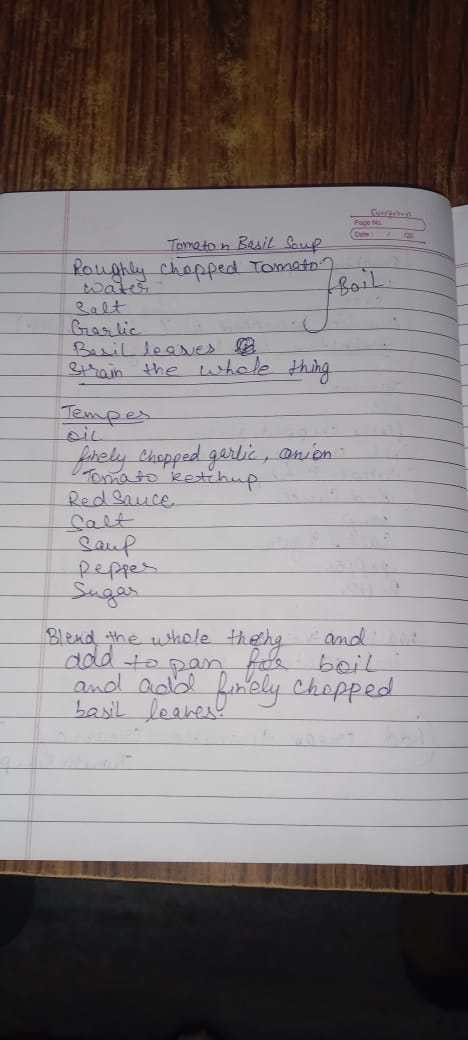 Evergreen
Page No.
Date: / /20
Tomato n Basil Soup
Roughly chopped Tomato
water
Salt
Garlic
Boil
Basil leaves
Strain the whole thing
Temper
oil
finely chopped garlic, onion
Tomato ketchup
Red Sauce
Salt
Soup
Pepper
Sugar
Blend the whole thing and
add to pan for boil
and add finely chopped
basil leaves.